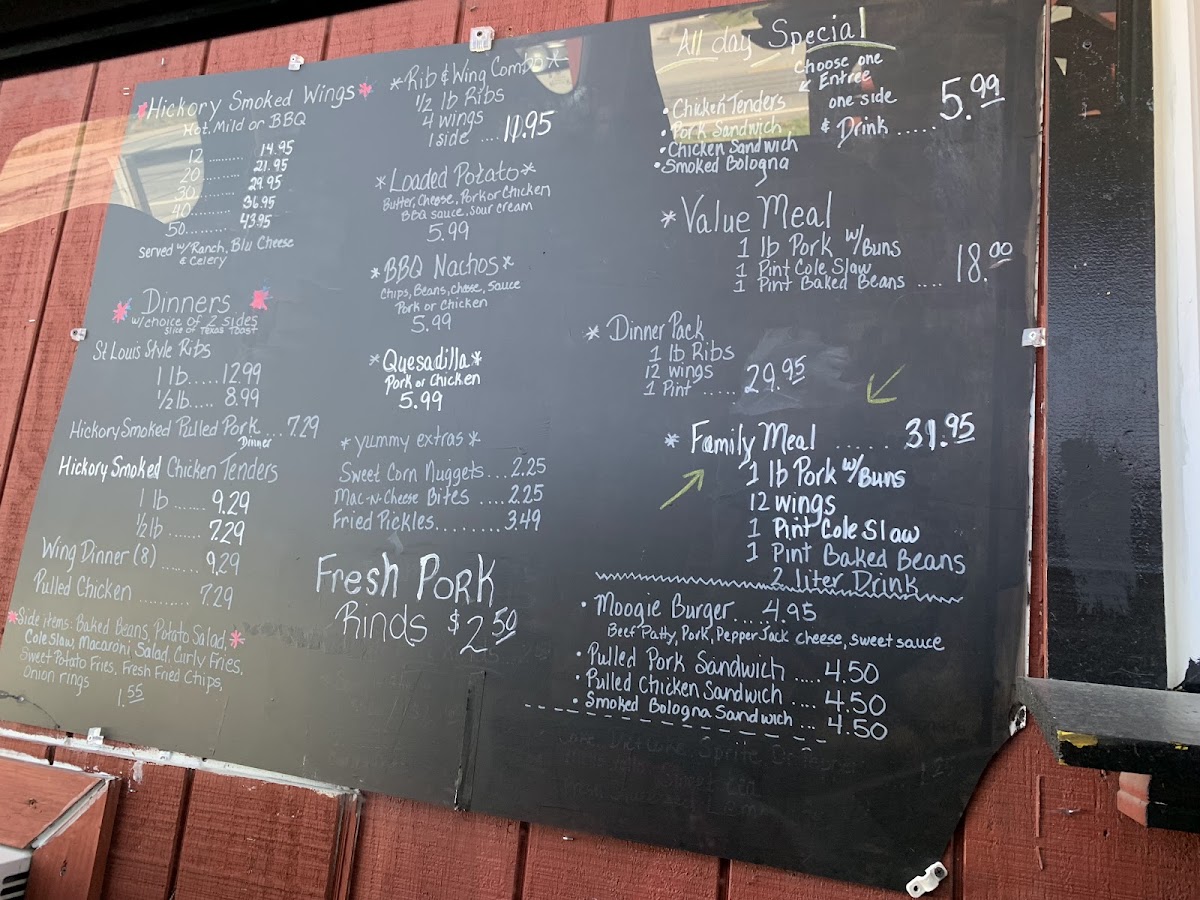 *Hickory Smoked Wings*
Hot, Mild or BBQ
12 ......... 14.95
20 ......... 21.95
30 ......... 29.95
40 ......... 36.95
50 ......... 43.95
Served w/ Ranch, Blu Cheese
& Celery
* Dinners *
w/choice of 2 sides
slice of Texas Toast
St Louis Style Ribs
1 lb ..... 12.99
1/2 lb ..... 8.99
Hickory Smoked Pulled Pork .. 7.29
Dinner
Hickory Smoked Chicken Tenders
1 lb ....... 9.29
1/2 lb ....... 7.29
Wing Dinner (8) ....... 9.29
Pulled Chicken ......... 7.29
*Side items: Baked Beans, Potato Salad, *
Cole Slaw, Macaroni Salad, Curly Fries,
Sweet Potato Fries, Fresh Fried Chips,
Onion rings
1.55
*Rib & Wing Combo*
1/2 lb Ribs
4 wings
1 side .... 11.95
*Loaded Potato*
Butter, Cheese, Pork or Chicken
BBQ sauce, Sour cream
5.99
*BBQ Nachos*
Chips, Beans, cheese, sauce
Pork or Chicken
5.99
*Quesadilla*
Pork or Chicken
5.99
*yummy extras*
Sweet Corn Nuggets ... 2.25
Mac-n-Cheese Bites ..... 2.25
Fried Pickles ......... 3.49
Fresh Pork
Rinds $2.50
All day Special
Choose one
Entree
one side
& Drink ..... 5.99
• Chicken Tenders
• Pork Sandwich
• Chicken Sandwich
• Smoked Bologna
* Value Meal
1 lb Pork w/Buns
1 Pint Cole Slaw
1 Pint Baked Beans .... 18.00
* Dinner Pack
1 lb Ribs
12 wings
1 Pint ..... 29.95
* Family Meal ...... 31.95
1 lb Pork w/Buns
12 wings
1 Pint Cole Slaw
1 Pint Baked Beans
2 liter Drink
• Moogie Burger ... 4.95
Beef Patty, Pork, Pepper Jack cheese, sweet sauce
• Pulled Pork Sandwich ..... 4.50
• Pulled Chicken Sandwich .... 4.50
• Smoked Bologna Sandwich ... 4.50